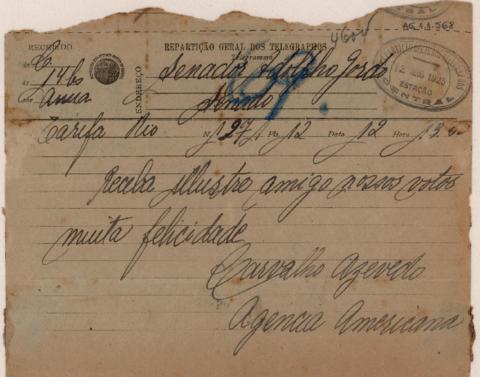 AG 1.1.568
RECEBIDO
REPARTIÇÃO GERAL DOS TELEGRAPHOS
Telegramma
ENDEREÇO
Senador Adolpho Gordo
Senado
12 AGO 1923
ESTAÇÃO
CENTRAL
Tarifa Rio N. 127 Pls. 12 Data 12 Hora 13
Receba illustre amigo nossos votos
muita felicidade
Carvalho Azevedo
Agencia Americana